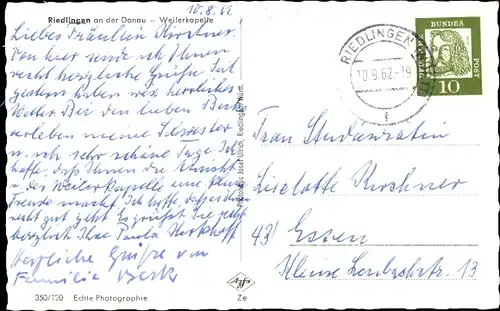 10.8.62
Riedlingen an der Donau – Weilerkapelle
Liebes Fräulein Kirchner.
Von hier sende ich Ihnen
recht herzliche Grüße. Seit
gestern haben wir herrliches
Wetter. Bei den lieben
verleben meine Schwester
u. ich sehr schöne Tage. Ich
hoffe, daß Ihnen die Ansicht
v. der Weilerkapelle eine kleine
Freude macht. Ich hoffe, daß es Ihnen
recht gut geht. Es grüßt Sie recht
herzlich Ihre Paula
Herzliche Grüße von
Familie
350/120 Echte Photographie
Agfa
Ze
RIEDLINGEN
10.9.62.-19
f
DEUTSCHE
BUNDES
POST
10
Frau Studienrätin
Liselotte Kirchner
43 Essen
Kleine 13